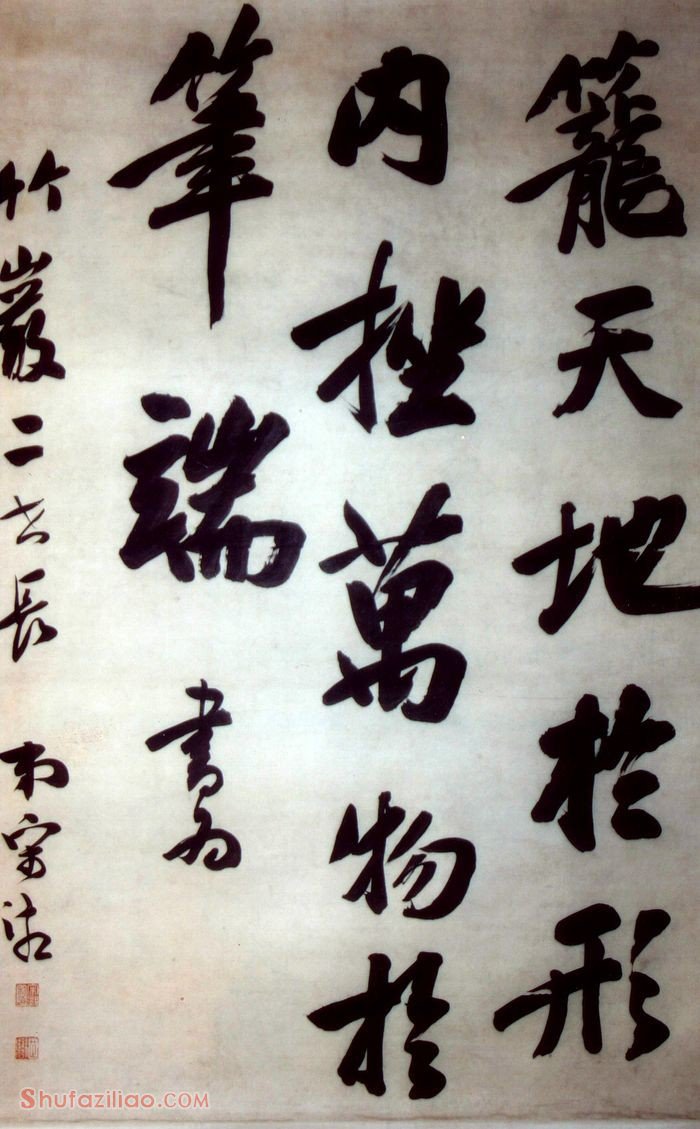 籠天地於形
內挫萬物於
筆端 書為
竹巖二兄長 宋湘
Shufaziliao.com